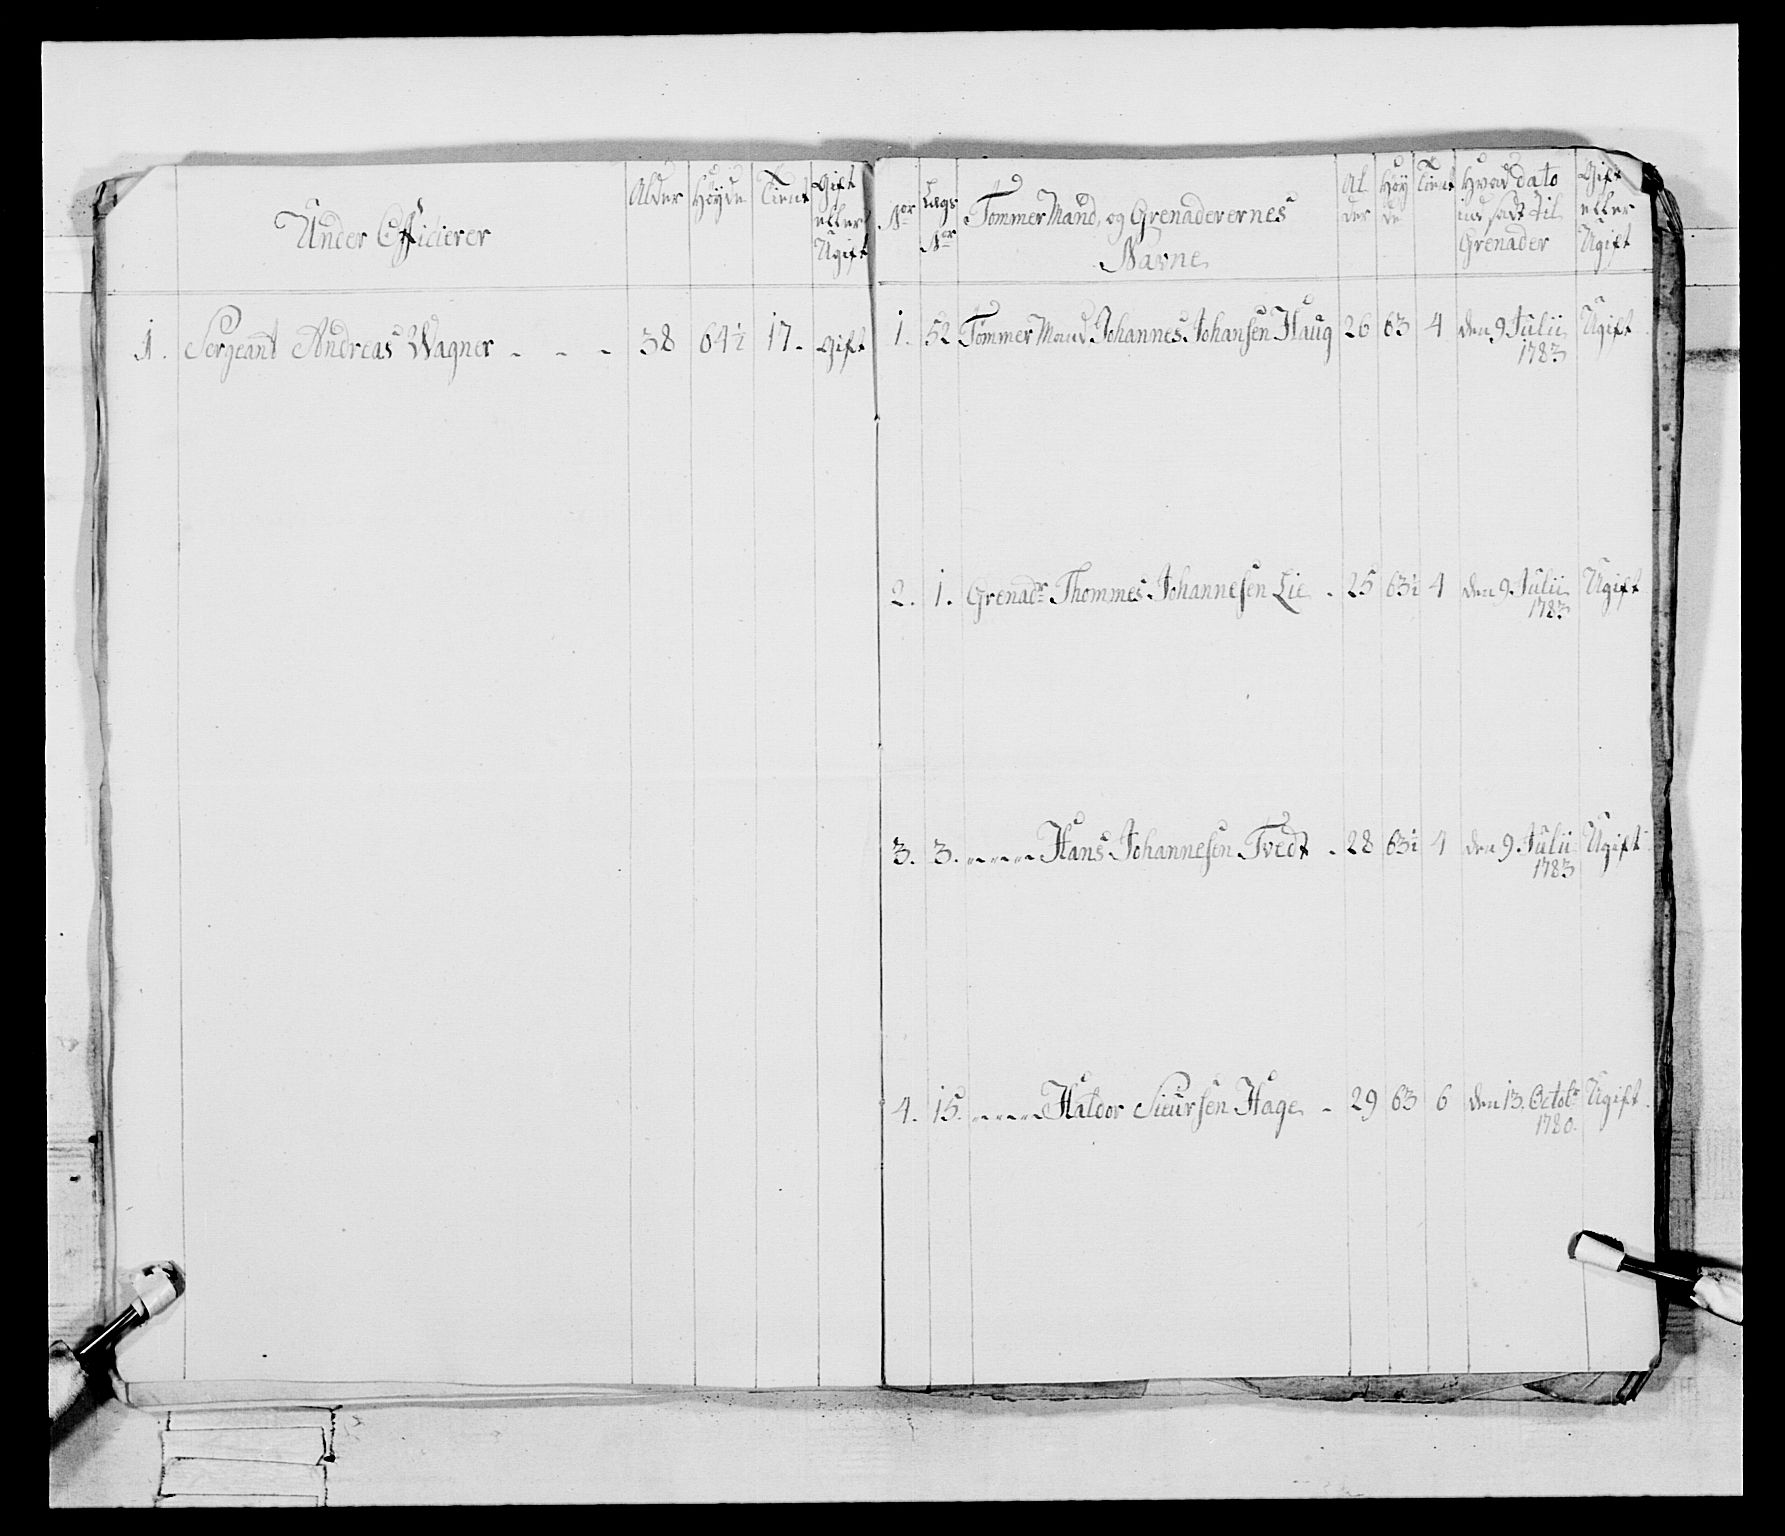 Under Officierer
Alder
Høyde
Tient
Gift
eller
Ugift
1. Sergeant Andreas Wagner - - - 38 64½ 17. Gift
Nor
Lægs
Nor
Tømmer Mand, og Grenaderernes
Navne
Al
der
Høy
de
Tient
Hvad dato
ind sadt til
Grenader
Gift
eller
Ugift
1. 52 Tømmer Mand Johannes Johansen Haug 26 63 4 den 9 Julii Ugift
1783
2. 1. Grenadr Thommes Johannesen Lie - 25 63½ 4 den 9 Julii Ugift
1783
3. 3. - - - - Hans Johannesen Tvedt - 28 63½ 4 den 9 Julii Ugift
1783
4. 15. - - - - Haldor Siursen Hage - 29 63 6 den 13. Octobr Ugift
1780.